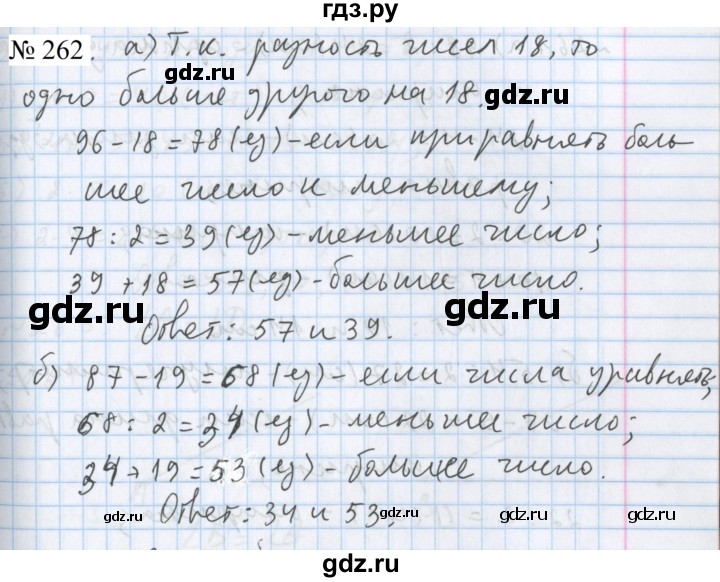 гдз.ру
№ 262. а) Т.к. разность чисел 18, то
gdz.ru
одно больше другого на 18.
gdz.ru
96-18=78(ед)-если приравнять боль-
шее число к меньшему;
78:2=39(ед)-меньшее число;
39+18=57(ед)-большее число.
gdz.ru
gdz.ru
Ответ: 57 и 39.
б) 87-19=68(ед)-если числа уравнять;
68:2=34(ед)-меньшее число;
34+19=53(ед)-большее число.
Ответ: 34 и 53.
gdz.ru
gdz.ru
gdz.ru